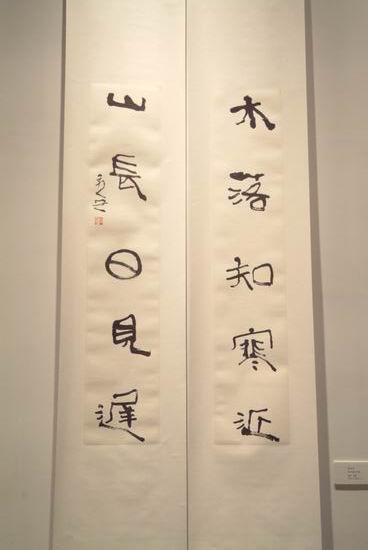 木落知寒近
山長日見遲